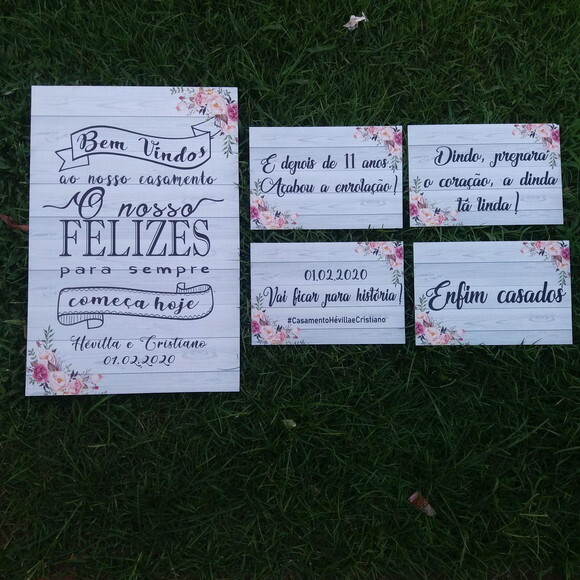 Bem Vindos
ao nosso casamento
O nosso
FELIZES
para sempre
começa hoje
Hévilla e Cristiano
01.02.2020
E depois de 11 anos
Acabou a enrolação!
Dindo, prepara
o coração, a dinda
tá linda!
01.02.2020
Vai ficar para história!
#CasamentoHévillaeCristiano
Enfim casados